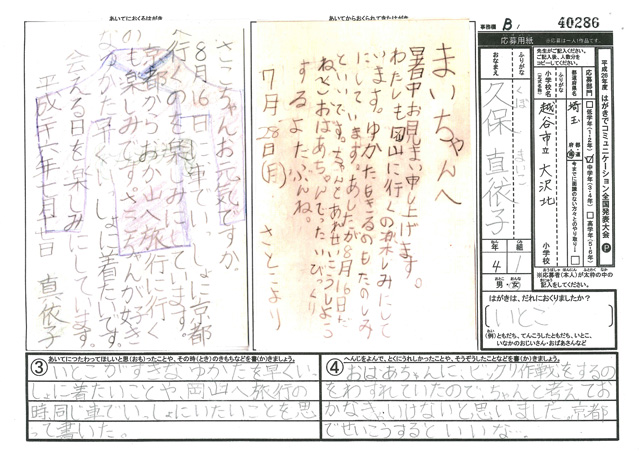 あいてにおくるはがき
さこちゃんお元気ですか。
8月16日に車でいっしょに京都
へ行くのを楽しみにしています。
京都からお 山へ旅行に行く
のも楽しみです。さこちゃんが好き
なゆかた早くいっしょに着たいです。
会える日を楽しみにしています。
平成二十六年七月 日 直依子
あいてからおくられてきたはがき
まいちゃんへ
暑中お見まい申し上げます。
わたしも岡山に行くの楽しみにして
います。ゆかたをきるのもたのしみ
にしています。あしたが8月16日だ
といいです。ちゃんとあわせいこうしよう
ね。おばあちゃんぜったいびっくり
するよ。たぶんね。
7月28日(月) さとこより
事務局 B 40286
応募用紙
※応募は一人1作品です。
先生がご記入ください。
ご記入後、人数分を
コピーしてください。
平成26年度 はがきでコミュニケーション全国発表大会 P
応募部門
低学年(1・2年)
中学年(3・4年)
高学年(5・6年)
今までに面識のない方々とのやり取り
都道府県名
埼玉
都 道 府 県
ふりがな
小学校名
(正式名称)
越谷市立 大沢北 小学校
ふりがな
おなまえ
くぼ まいこ
久保 直依子
年 組
4 1
男・女
※応募者(本人)が太枠の中の
記入をしてください。
はがきは、だれにおくりましたか?
いとこ
(例)ともだち、てんこうしたともだち、いとこ、
いなかのおじいさん・おばあさんなど
③ あいてにつたわってほしいと思(おも)ったことや、その時(とき)のきもちなどを書(か)きましょう。
いとこが好きな、ゆかたを早くいっ
しょに着たいことや、岡山へ旅行の
時、同じ車でいっしょにいたいことを思
って書いた。
④ へんじをよんで、とくにうれしかったことや、そうぞうしたことなどを書(か)きましょう。
おばあちゃんに、ビックリ作戦をするの
をわすれていたので、ちゃんと考えてお
かなきゃいけないと思いました。京都
でせいこうするといいな。